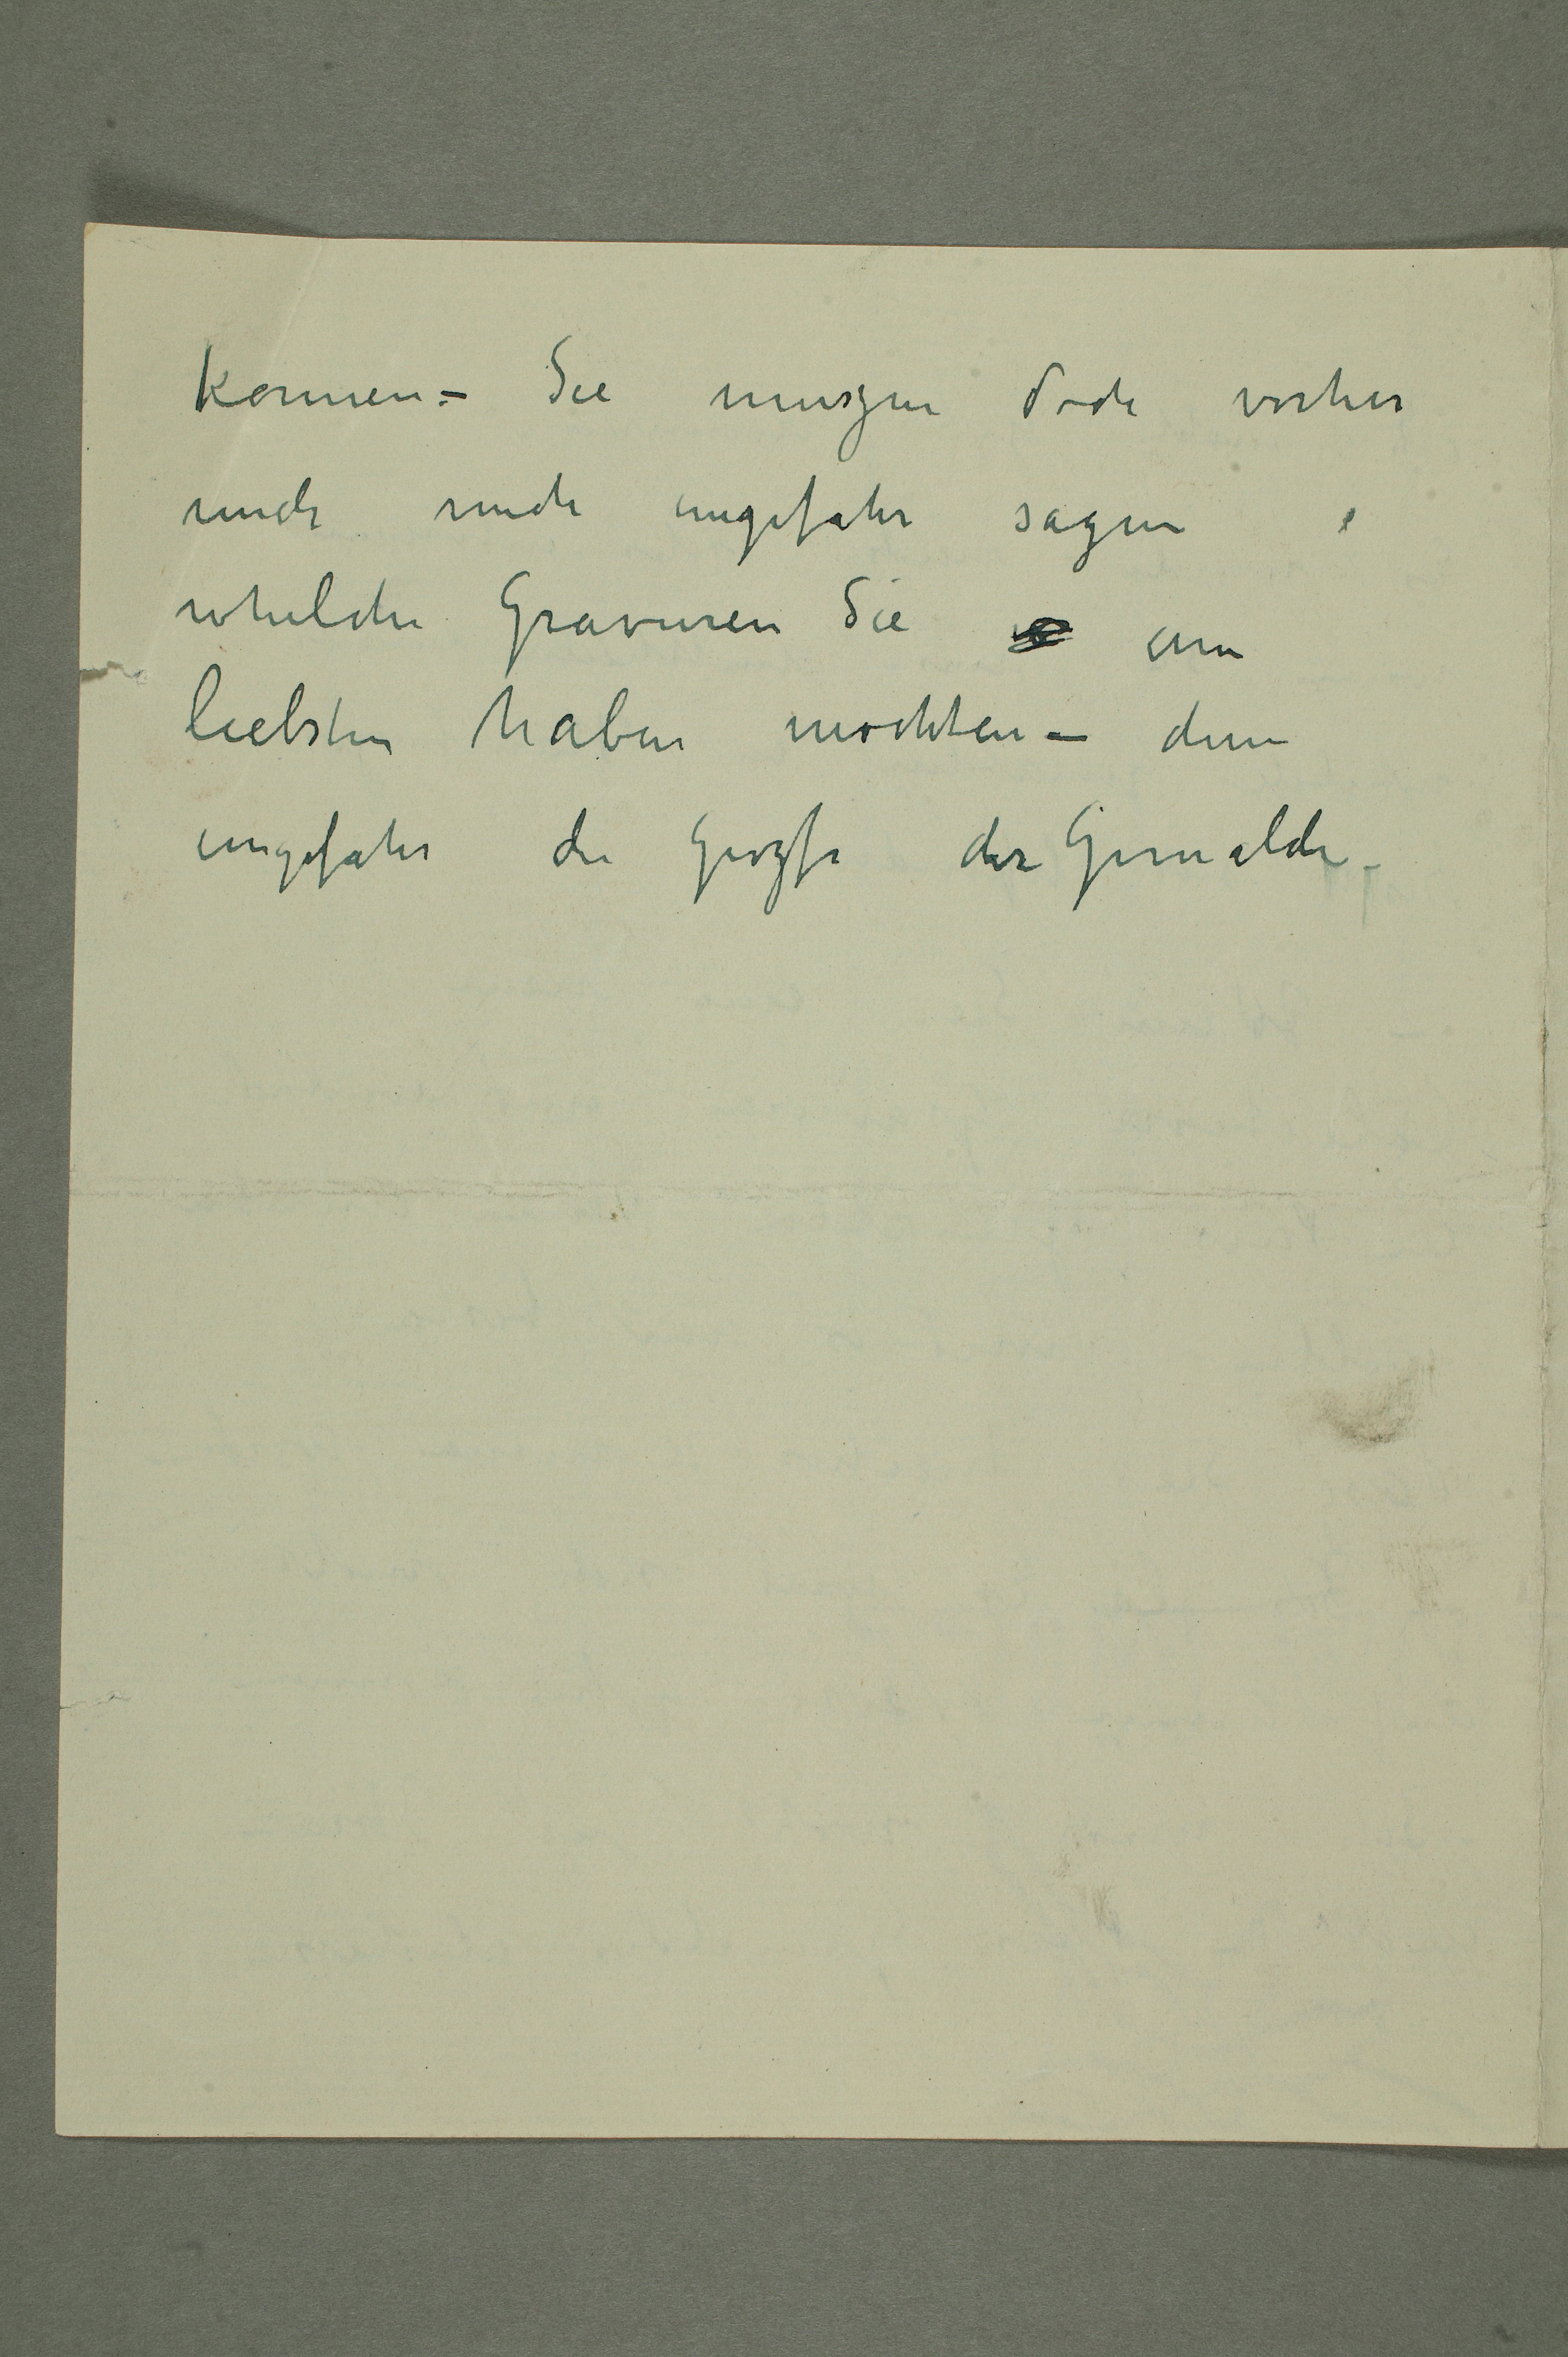 konnen – Sie muszen doch vorher
mich mich ungefahr sagen ,
whelche Gravuren Sie am
liebsten haben mochten – den
ungefahr die Grozse der Gemalde –